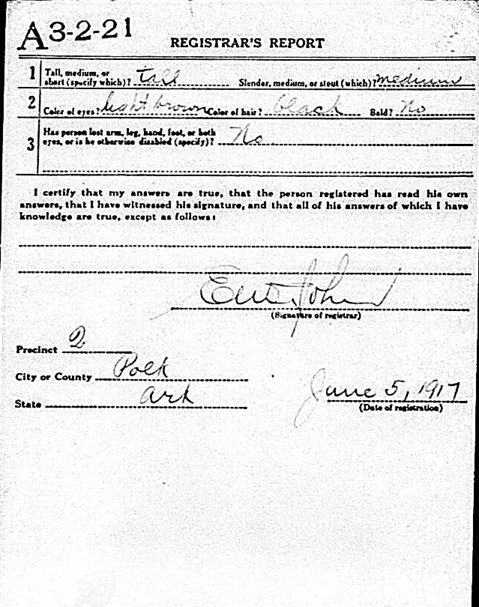 A3-2-21
REGISTRAR'S REPORT
1 Tall, medium, or short (specify which)? tall Slender, medium, or stout (which)? medium
2 Color of eyes? light brown Color of hair? black Bald? No
3 Has person lost arm, leg, hand, foot, or both
eyes, or is he otherwise disabled (specify)? No
I certify that my answers are true, that the person registered has read his own
answers, that I have witnessed his signature, and that all of his answers of which I have
knowledge are true, except as follows:
(Signature of registrar)
Precinct 2
City or County Polk
State Ark
June 5, 1917
(Date of registration)